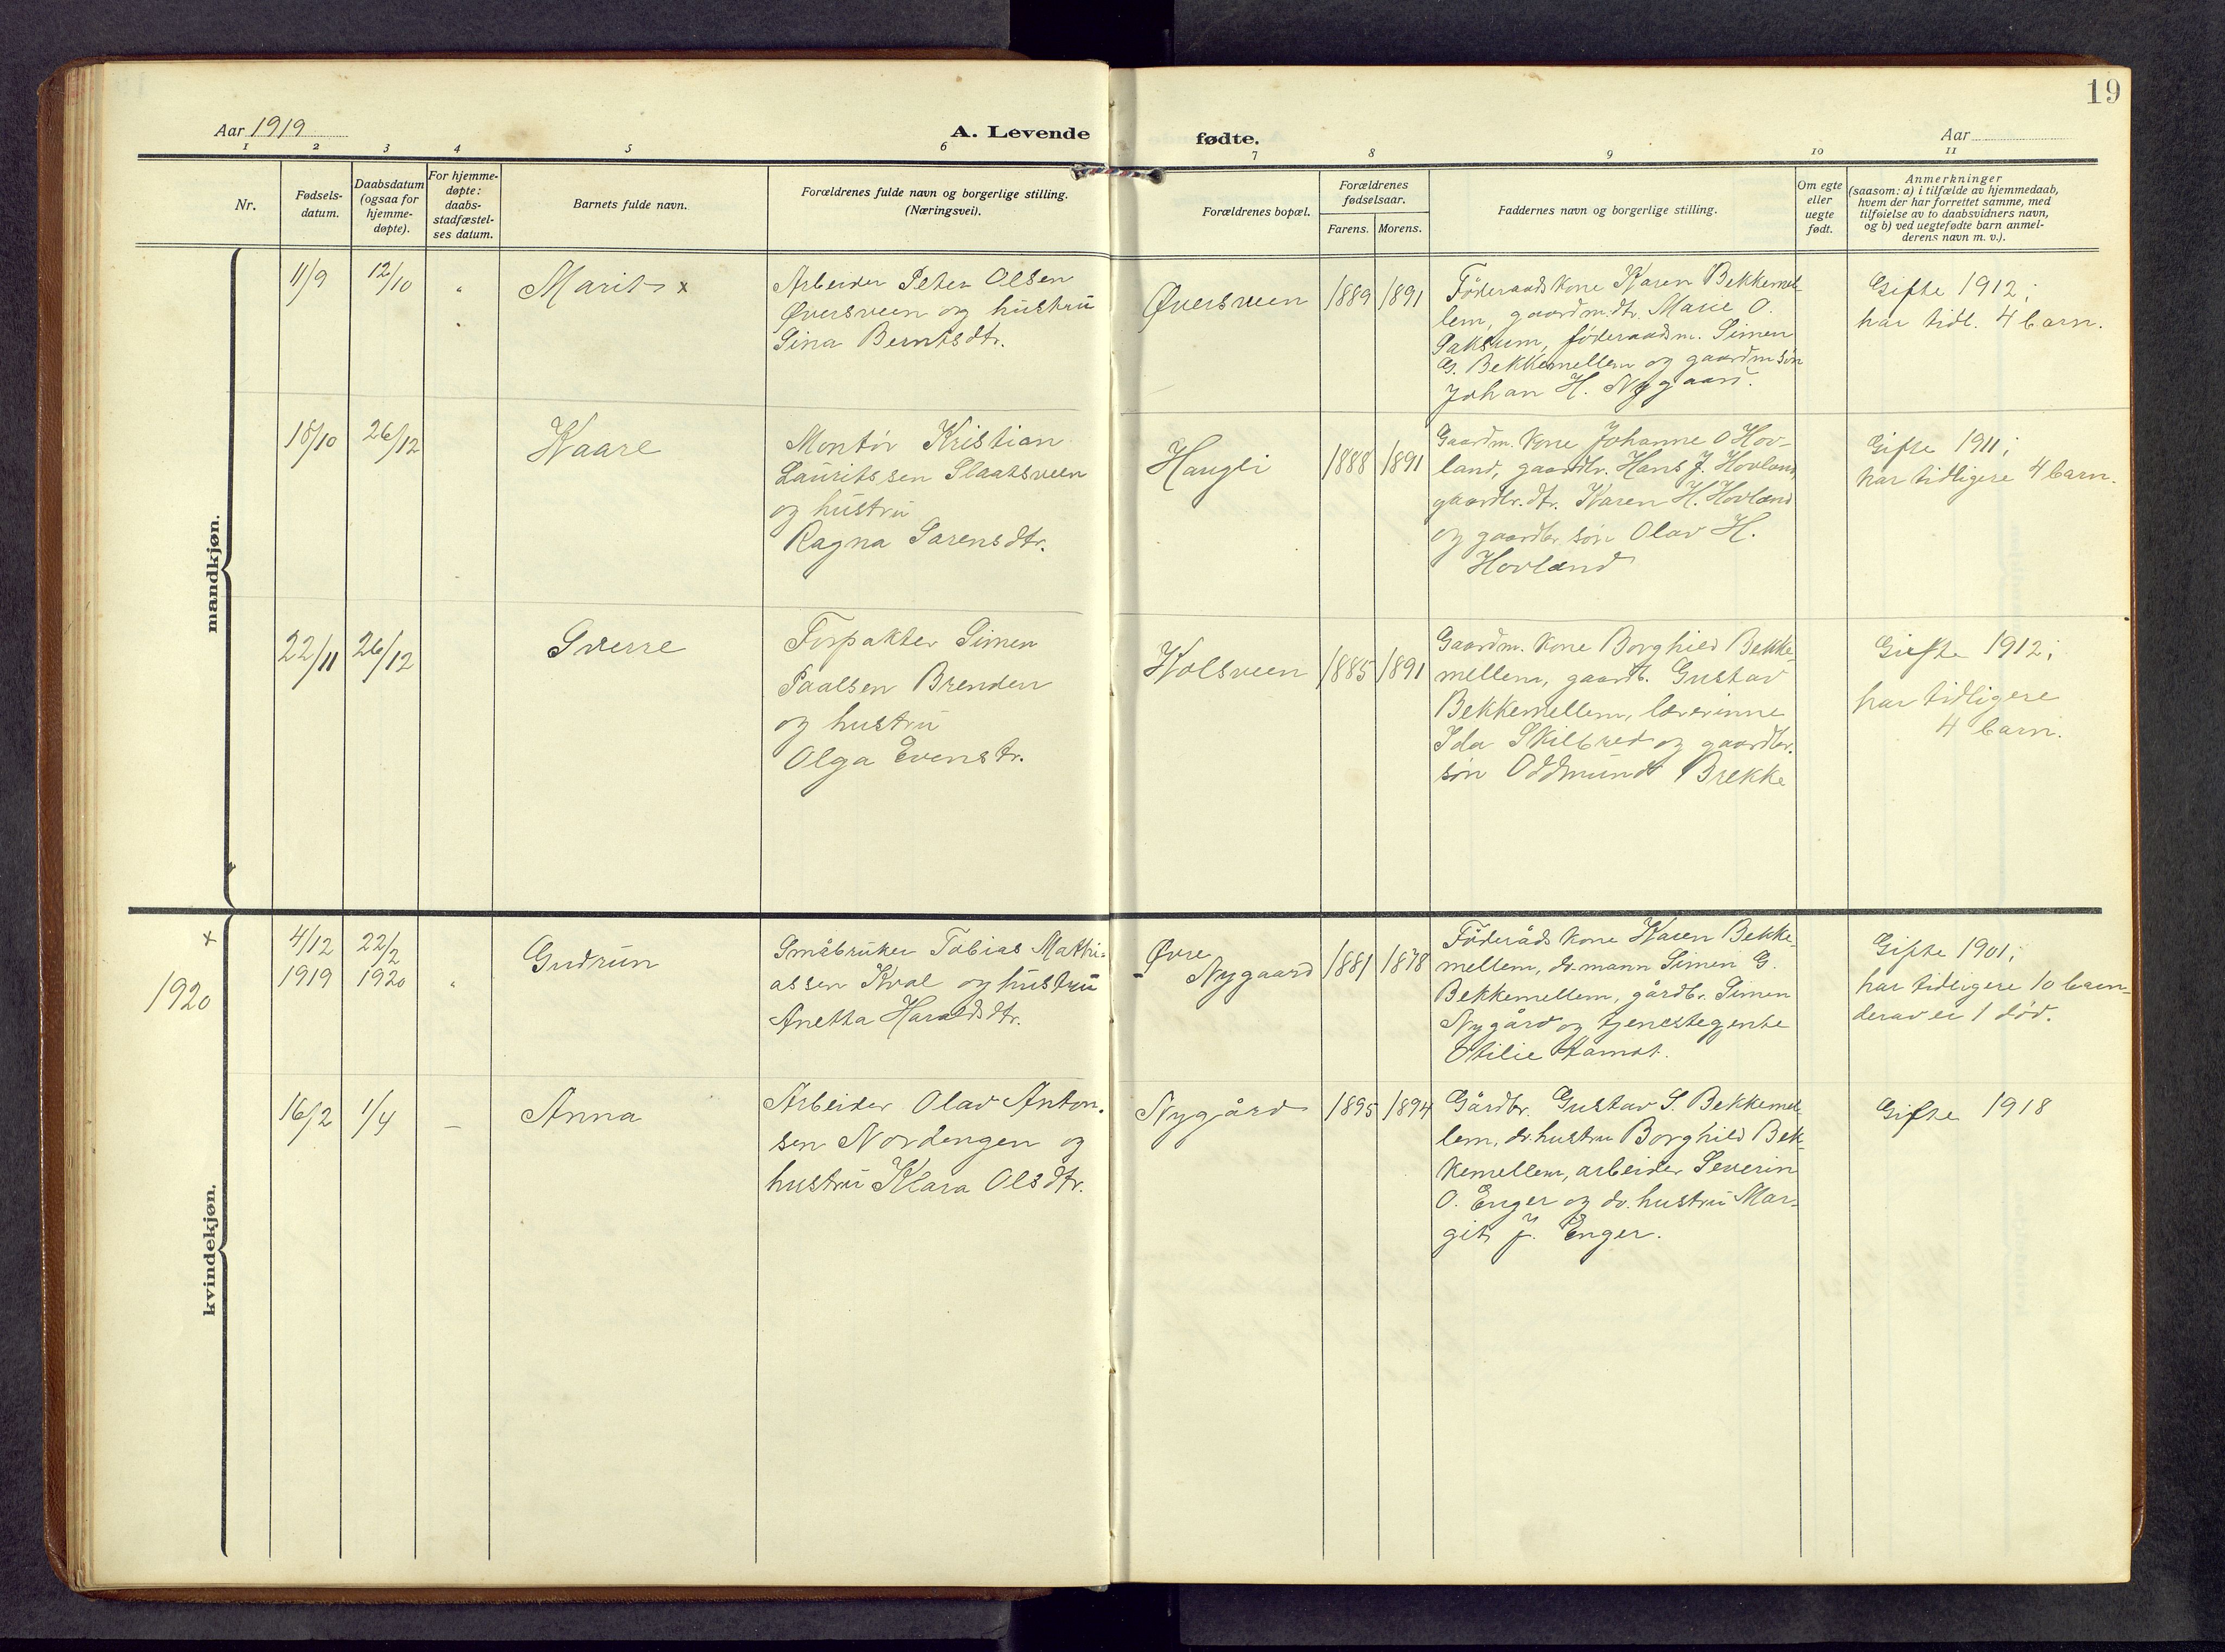 19
Aar 1919
A. Levende
fødte.
Aar
1 2 3 4 5 6 7 8 9 10 11
Nr.
Fødsels-
datum.
Daabsdatum
(ogsaa for
hjemme-
døpte).
For hjemme-
døpte:
daabs-
stadfæstel-
ses datum.
Barnets fulde navn.
Forældrenes fulde navn og borgerlige stilling.
(Næringsvei).
Forældrenes bopæl.
Forældrenes
fødselsaar.
Farens. Morens.
Faddernes navn og borgerlige stilling.
Om egte
eller
uegte
født.
Anmerkninger
(saasom: a) i tilfælde av hjemmedaab,
hvem der har forrettet samme, med
tilføielse av to daabsvidners navn,
og b) ved uegtefødte barn anmel-
derens navn m. v.).
mandkjøn.
11/9 12/10 "
Marit x
Arbeider Peter Olsen
Øversveen og hustru
Gina Berntsdtr.
Øversveen
1889 1891
Föderaadskone Karen Bekkemel-
lem, gaardm.dtr. Marie O.
Saksum, föderaadsm. Simen
G. Bekkemellem og gaardm søn
Johan H. Nygaard.
Gifte 1912;
har tidl. 4 barn.
18/10 26/12
Kaare
Montör Kristian
Lauritssen Slaatsveen
og hustru
Ragna Larensdtr.
Haugli
1888 1891
Gaardm. kone Johanne O Hov-
land, gaardbr. Hans J. Hovland,
gaardbr. dtr. Karen H. Hovland
og gaardbr. søn Olav H.
Hovland
Gifte 1911;
har tidligere 4 barn.
22/11 26/12
Sverre
Forpakter Simen
Paalsen Brenden
og hustru
Olga Evenstr.
Kolsveen
1885 1891
Gaardm. kone Borghild Bekke-
mellem, gaardb. Gustav
Bekkemellem, lærerinne
Ida Skilbred og gaardbr.
søn Oddmund Brekke
Gifte 1912;
har tidligere
4 barn.
kvindekjøn.
x
1920
4/12 22/2
1919 1920 "
Gudrun
Småbruker Tobias Mathi-
assen Kval og hustru
Anetta Haraldsdtr.
Øvre
Nygaard
1881 1878
Föderåds kone Karen Bekke-
mellem, dr. mann Simen G.
Bekkemellem, gårdbr. Simen
Nygård og tjenestegente
Otilie
Gifte 1901;
har tidligere 10 barn
derav er 1 död.
16/2 1/4 –
Anna
Arbeider Olav Anton-
sen Nordengen og
hustru Klara Olsdtr.
Nygård
1895 1894
Gårdbr. Gustav S. Bekkemel-
lem, dr. hustru Borghild Bek-
kemellem, arbeider Severin
O. Enger og dr. hustru Mar-
git J. Enger.
Gifte 1918